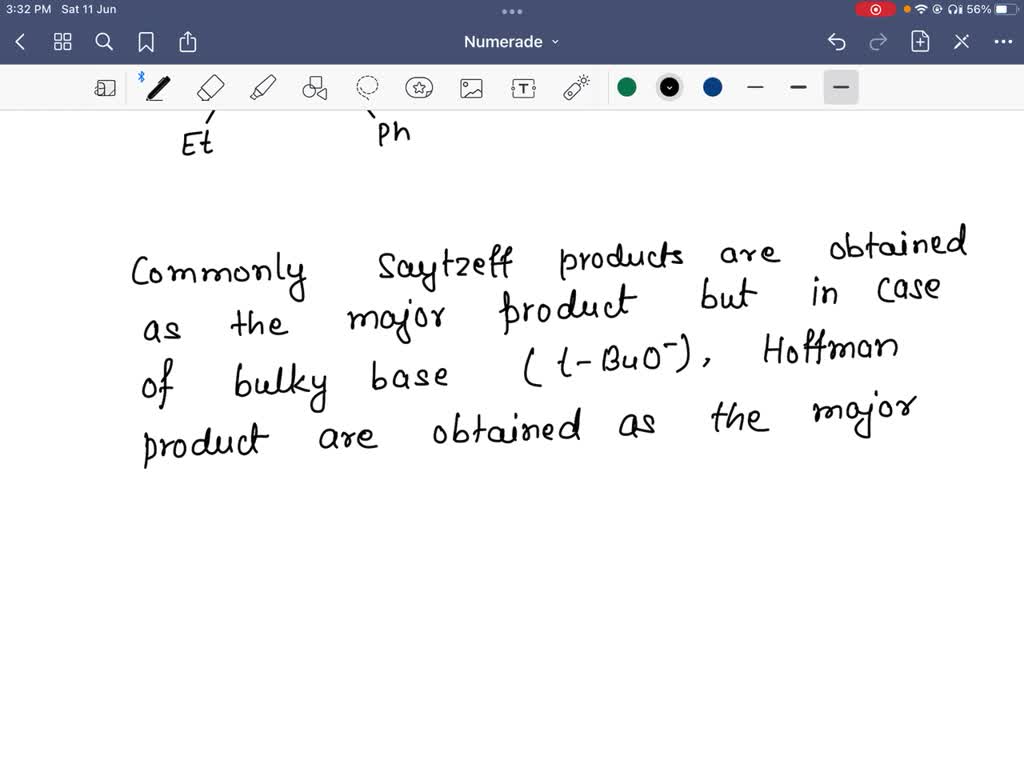 3:32 PM Sat 11 Jun
56%
Numerade
Et
Ph
Commonly Saytzeff products are obtained
as the major product but in case
of bulky base (t-BuO⁻), Hoffman
product are obtained as the major